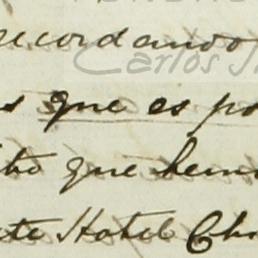 recordando
Carlos
s que es po
que hem
te Hotel Ch